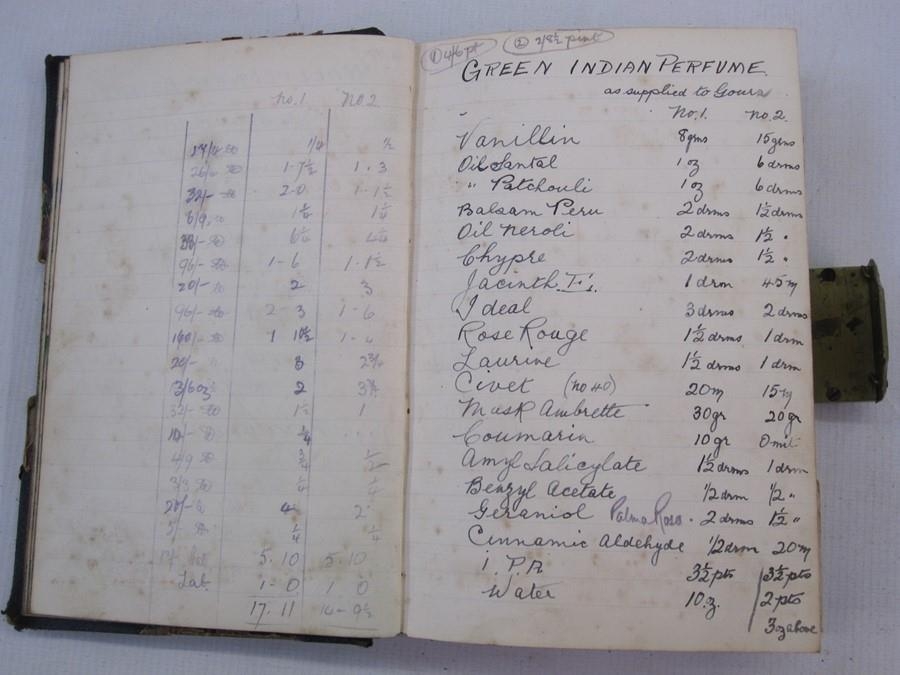 no.1 no.2
1/4 1/2
26/- 1-7½ 1.3
32/- 2-0 1-1½
6/9 1¼ 1¼
6¼ 4¼
96/- 1-6 1-1½
20/- 2 3
96/- 2-3 1-6
160/- 1 10½ 1-4
20/- 3 2¾
3/6 oz 2
32/- 1½ 1
10/- ¼
4/9 ¾ ½
3/3 ¼ ¼
20/- 4 2
5/- ¼ ¼
5.10 5.10
Lab. 1-0 1 0
17.11 14-9½
① 4/6 pt ② 2/8½ pint
GREEN INDIAN PERFUME
as supplied to
No.1. no.2.
Vanillin 8gms 15gms
Oil Santal 1 oz 6 drms
" Patchouli 1 oz 6 drms
Balsam Peru 2 drms 1½ drms
Oil Neroli 2 drms 1½ "
Chypre 2 drms 1½ "
Jacinth 1 drm 45m
Ideal 3 drms 2 drms
Rose Rouge 1½ drms 1 drm
Laurine 1½ drms 1 drm
Civet (no 40) 20m 15m
Musk Ambrette 30gr 20gr
Coumarin 10gr Omit
Amyl Salicylate 1½ drms 1 drm
Benzyl Acetate ½ drm ½ "
Geraniol Palma Rosa. 2 drms 1½ "
Cinnamic Aldehyde ½ drm 20m
I.P.A 3½ pts 3½ pts
Water 10 oz. 2 pts
3 oz above